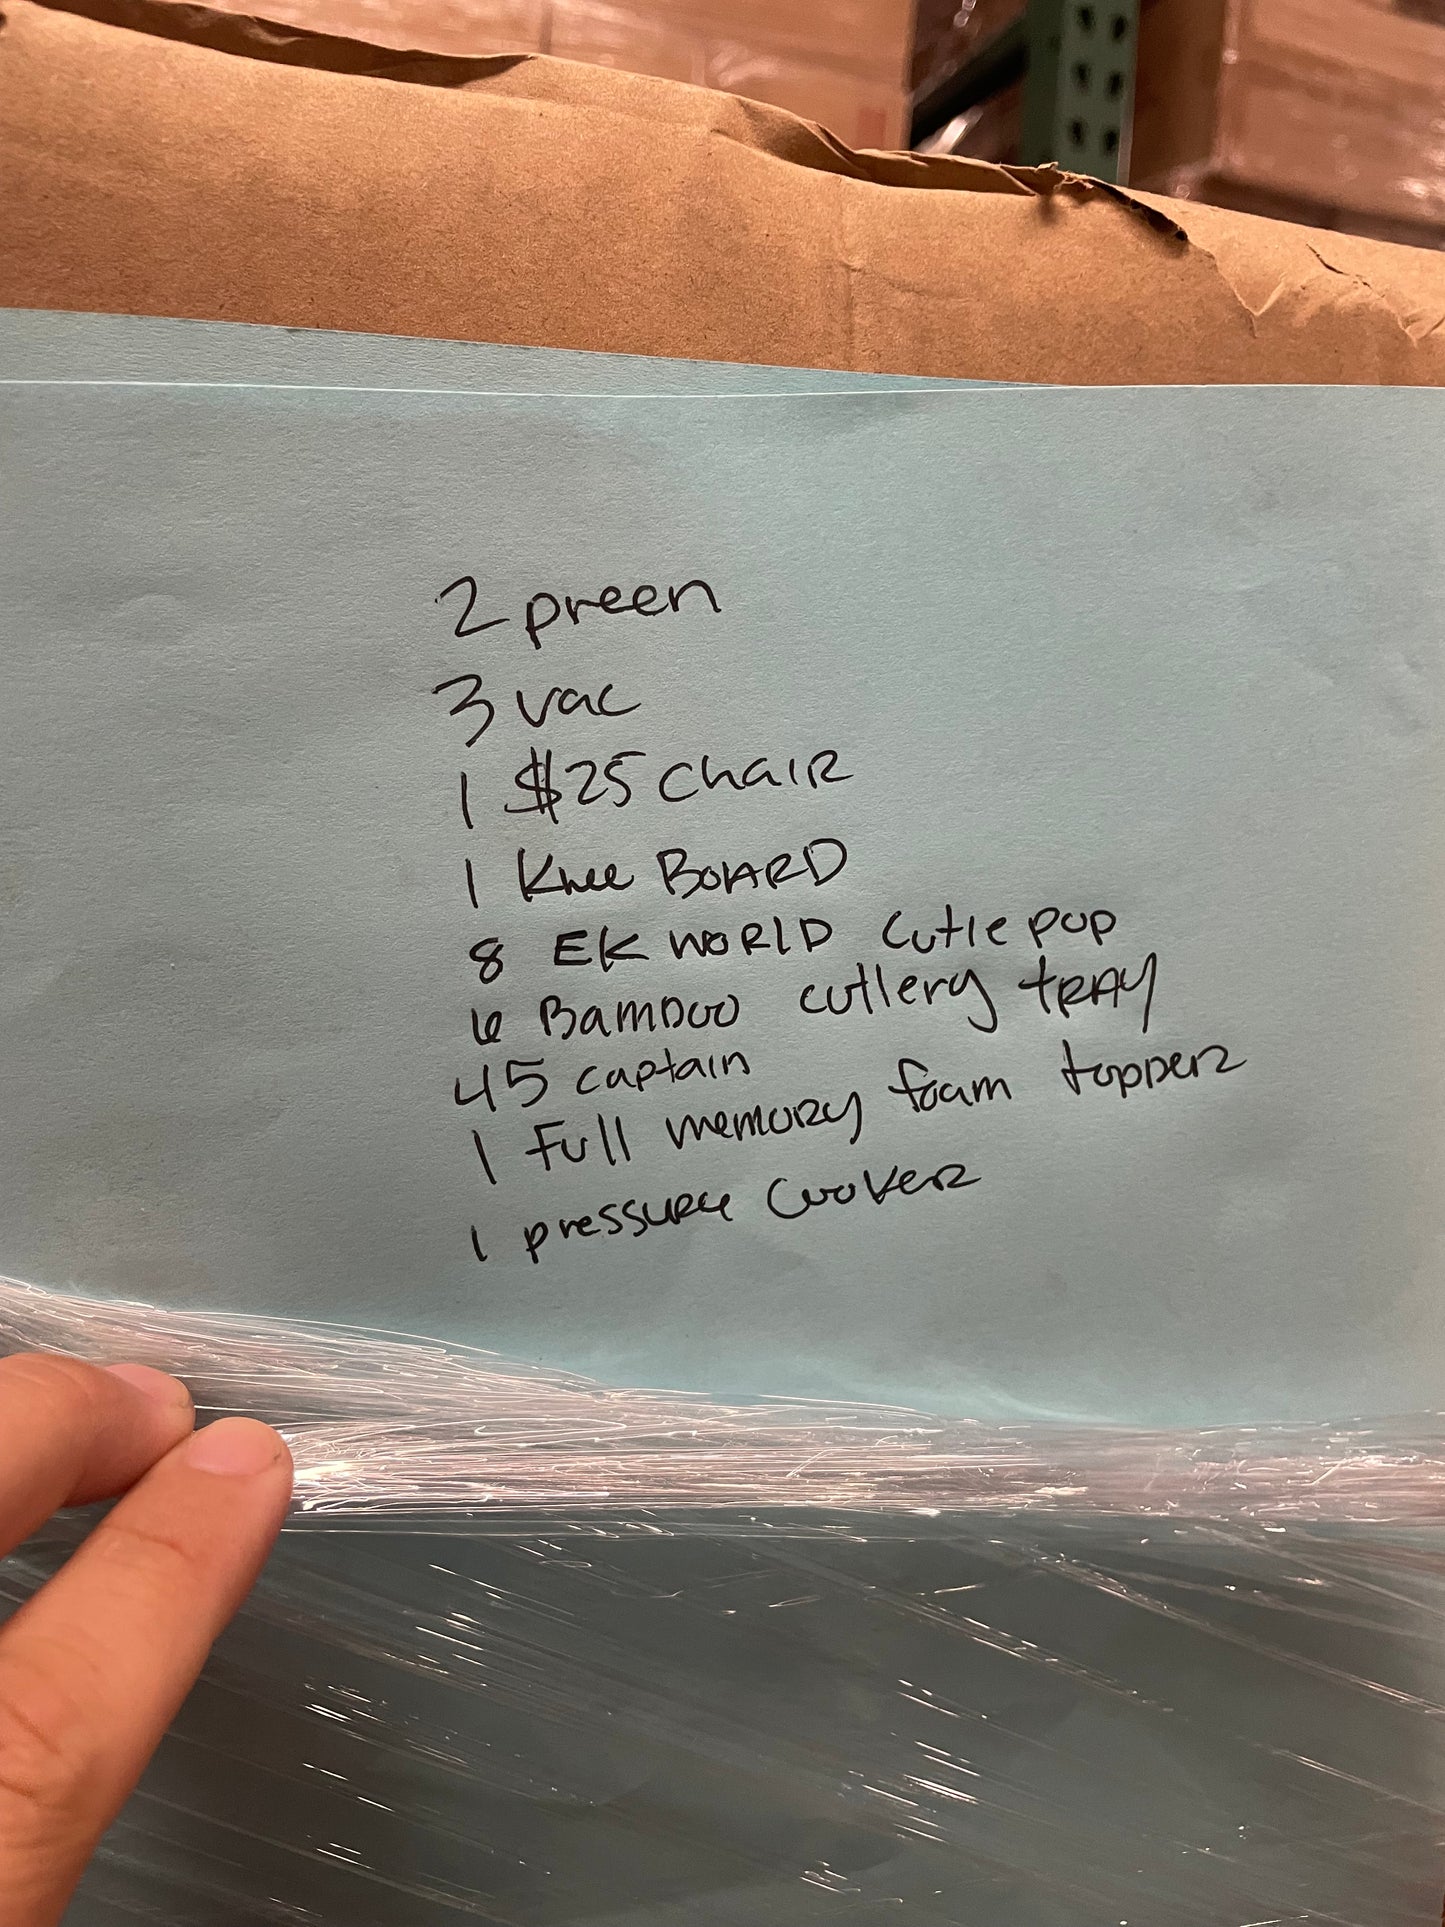 2 preen
3 vac
1 $25 chair
1 Knee BOARD
8 EK WORLD cutie pup
6 Bamboo cutlery tray
45 captain
1 Full memory foam topper
1 pressure cooker